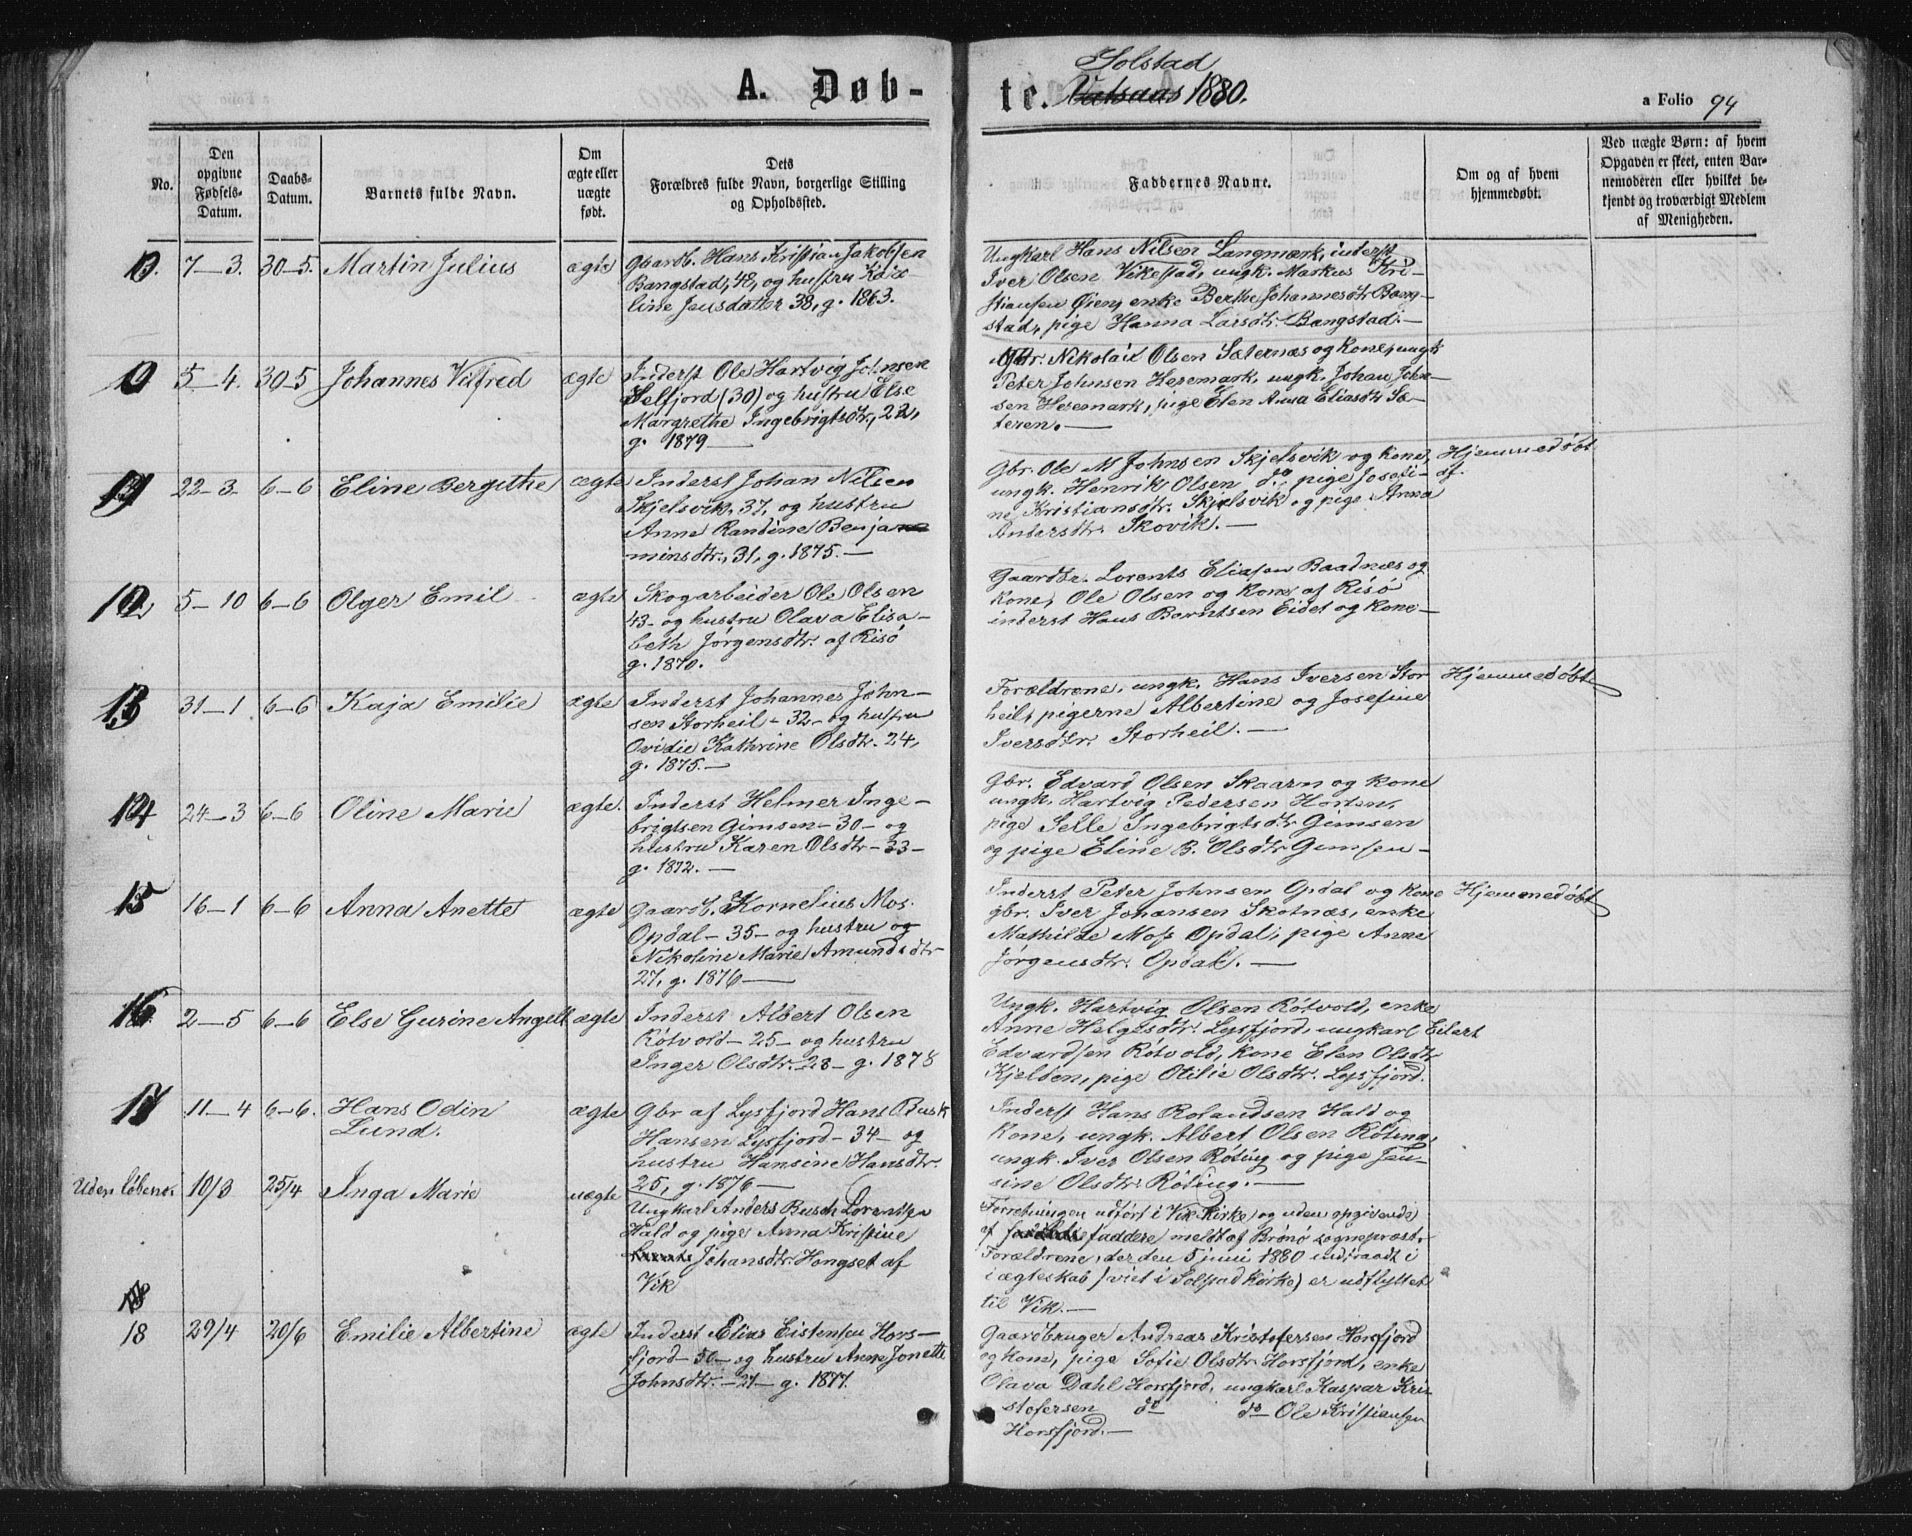 A. Døb-
te. Solstad
Vatsaas 1880.
a Folio 94
No.
Den opgivne Fødsels-Datum.
Daabs-Datum.
Barnets fulde Navn.
Om ægte eller uægte født.
Dets Forældres fulde Navn, borgerlige Stilling og Opholdssted.
Faddernes Navne.
Om og af hvem hjemmedøbt.
Ved uægte Børn: af hvem Opgaven er skeet, enten Barnemoderen eller hvilket bekjendt og troværdigt Medlem af Menigheden.
7-3. 30-5. Martin Julius ægte
Gaardb. Hans Kristian Jakobsen
Bangstad, 48, og hustru
line Jensdatter 38, g. 1863.
Ungkarl Hans Nilsen Langmærk, inderst
Iver Olsen Vikestad, ungk. Markus Kri-
stiansen Øien, enke Berthe Johannesdtr Bang-
stad, pige Hanna Larsdtr. Bangstad.-
5-4. 30-5 Johannes Vilfred ægte
Inderst Ole Hartvig Johnsen
Selfjord (30) og hustru Else
Margrethe Ingebrigtsdtr, 22,
g. 1879-
Gbr. Nikolai Olsen Sæternæs og kone, ungk
Peter Johnsen Heremark, ungk. Johan John-
sen Heremark, pige Elen Anna Eliasdtr Sæ-
teren.-
11 22-3. 6-6 Eline Bergithe ægte
Inderst Johan Nilsen
Skjelsvik, 37, og hustru
Anne Randine Benja
minsdtr., 31, g. 1875.-
Gbr. Ole M Johnsen Skjelsvik og kone,
ungk. Henrik Olsen do pige Josefi-
ne Kristiansdtr. Skjelsvik og pige Anna
Andersdtr. Skovik.-
Hjemmedøbt
af.
12 5-10 6-6 Olger Emil ægte
Skogarbeider Ole Olsen
43- og hustru Olava Elisa-
beth Jørgensdtr. af Risø
g. 1870.
Gaardbr. Lorents Eliasen Baadnæs og
kone, Ole Olsen og kone af Risø
inderst Hans Berntsen Eidet og kone-
13 31-1 6-6 Kaja Emilie ægte
Inderst Johannes John-
sen Storheil - 32 - og hustru
Ovidie Kathrine Olsdtr. 24,
g. 1875.-
Forældrene, ungk. Hans Iversen Stor
heil, pigerne Albertine og Josefine
Iversdtr. Storheil.-
Hjemmedøbt
14 24-3 6-6 Oline Marie ægte.
Inderst Helmer Inge-
brigtsen Gimsen - 30 - og
hustru Karen Olsdtr - 33 -
g. 1872.-
Gbr. Edvard Olsen Skaarn og kone
ungk. Hartvig Pedersen Horten,
pige Selle Ingebrigtsdtr Gimsen
og pige Eline B. Olsdtr Gimsen -
15 16-1 6-6 Anna Anette ægte
Gaardb. Kornelius Mos.
Opdal - 35 - og hustru og
Nikoline Marie Amundsdtr
27, g. 1876-
Inderst Peter Johnsen Opdal og kone
gbr. Iver Johansen Skotnæs, enke
Mathilde Moss Opdal, pige Anne
Jørgensdtr. Opdal.-
Hjemmedøbt
16 2-5 6-6 Else Gurine Angell ægte
Inderst Albert Olsen
Røtvold - 25 - og hustru
Inger Olsdtr. - 28 - g. 1878
Ungk. Hartvig Olsen Røtvold, enke
Anne Helgesdtr. Lysfjord, ungkarl Eilert
Edvardsen Røtvold, kone Elen Olsdtr
Kjelden, pige Otilie Olsdtr. Lysfjord.
17 11-4 6-6. Hans Odin
Lund. ægte
Gbr af Lysfjord Hans Busk
Hansen Lysfjord - 34 - og
hustru Hansine Hansdtr.
25, g. 1876-
Inderst Hans Rolandsen Hald og
kone, ungk. Albert Olsen Røting,
ungk. Iver Olsen Røting og pige Jen-
sine Olsdtr. Røting.-
Uden løbenr. 10/3 25/4 Inga Marie uægte
Ungkarl Anders Busch Lorentsen
Hald og pige Anna Kristine
Johansdtr. Hongset af
Vik
Forretningen udført i Vik Kirke og uden opgivende
af faddere meldt af Brønø sognepræst.
Forældrene, der den 5 juni 1880 indtraadt i
i ægteskab (viet i Solstad kirke) er udflyttet
til Vik.-
18
18 29/4 20/6 Emilie Albertine ægte
Inderst Elias Eistensen Hors-
fjord - 50 - og hustru Anne Jonette
Johnsdtr. - 21 - g. 1877.
Gaardbruger Andreas Kristofersen Horsfjord
og kone, pige Sofie Olsdtr Horsfjord, enke
Olava Dahl Horsfjord, ungkarl Kaspar Kri-
stofersen do do Ole Kristiansen
Horsfjord.-